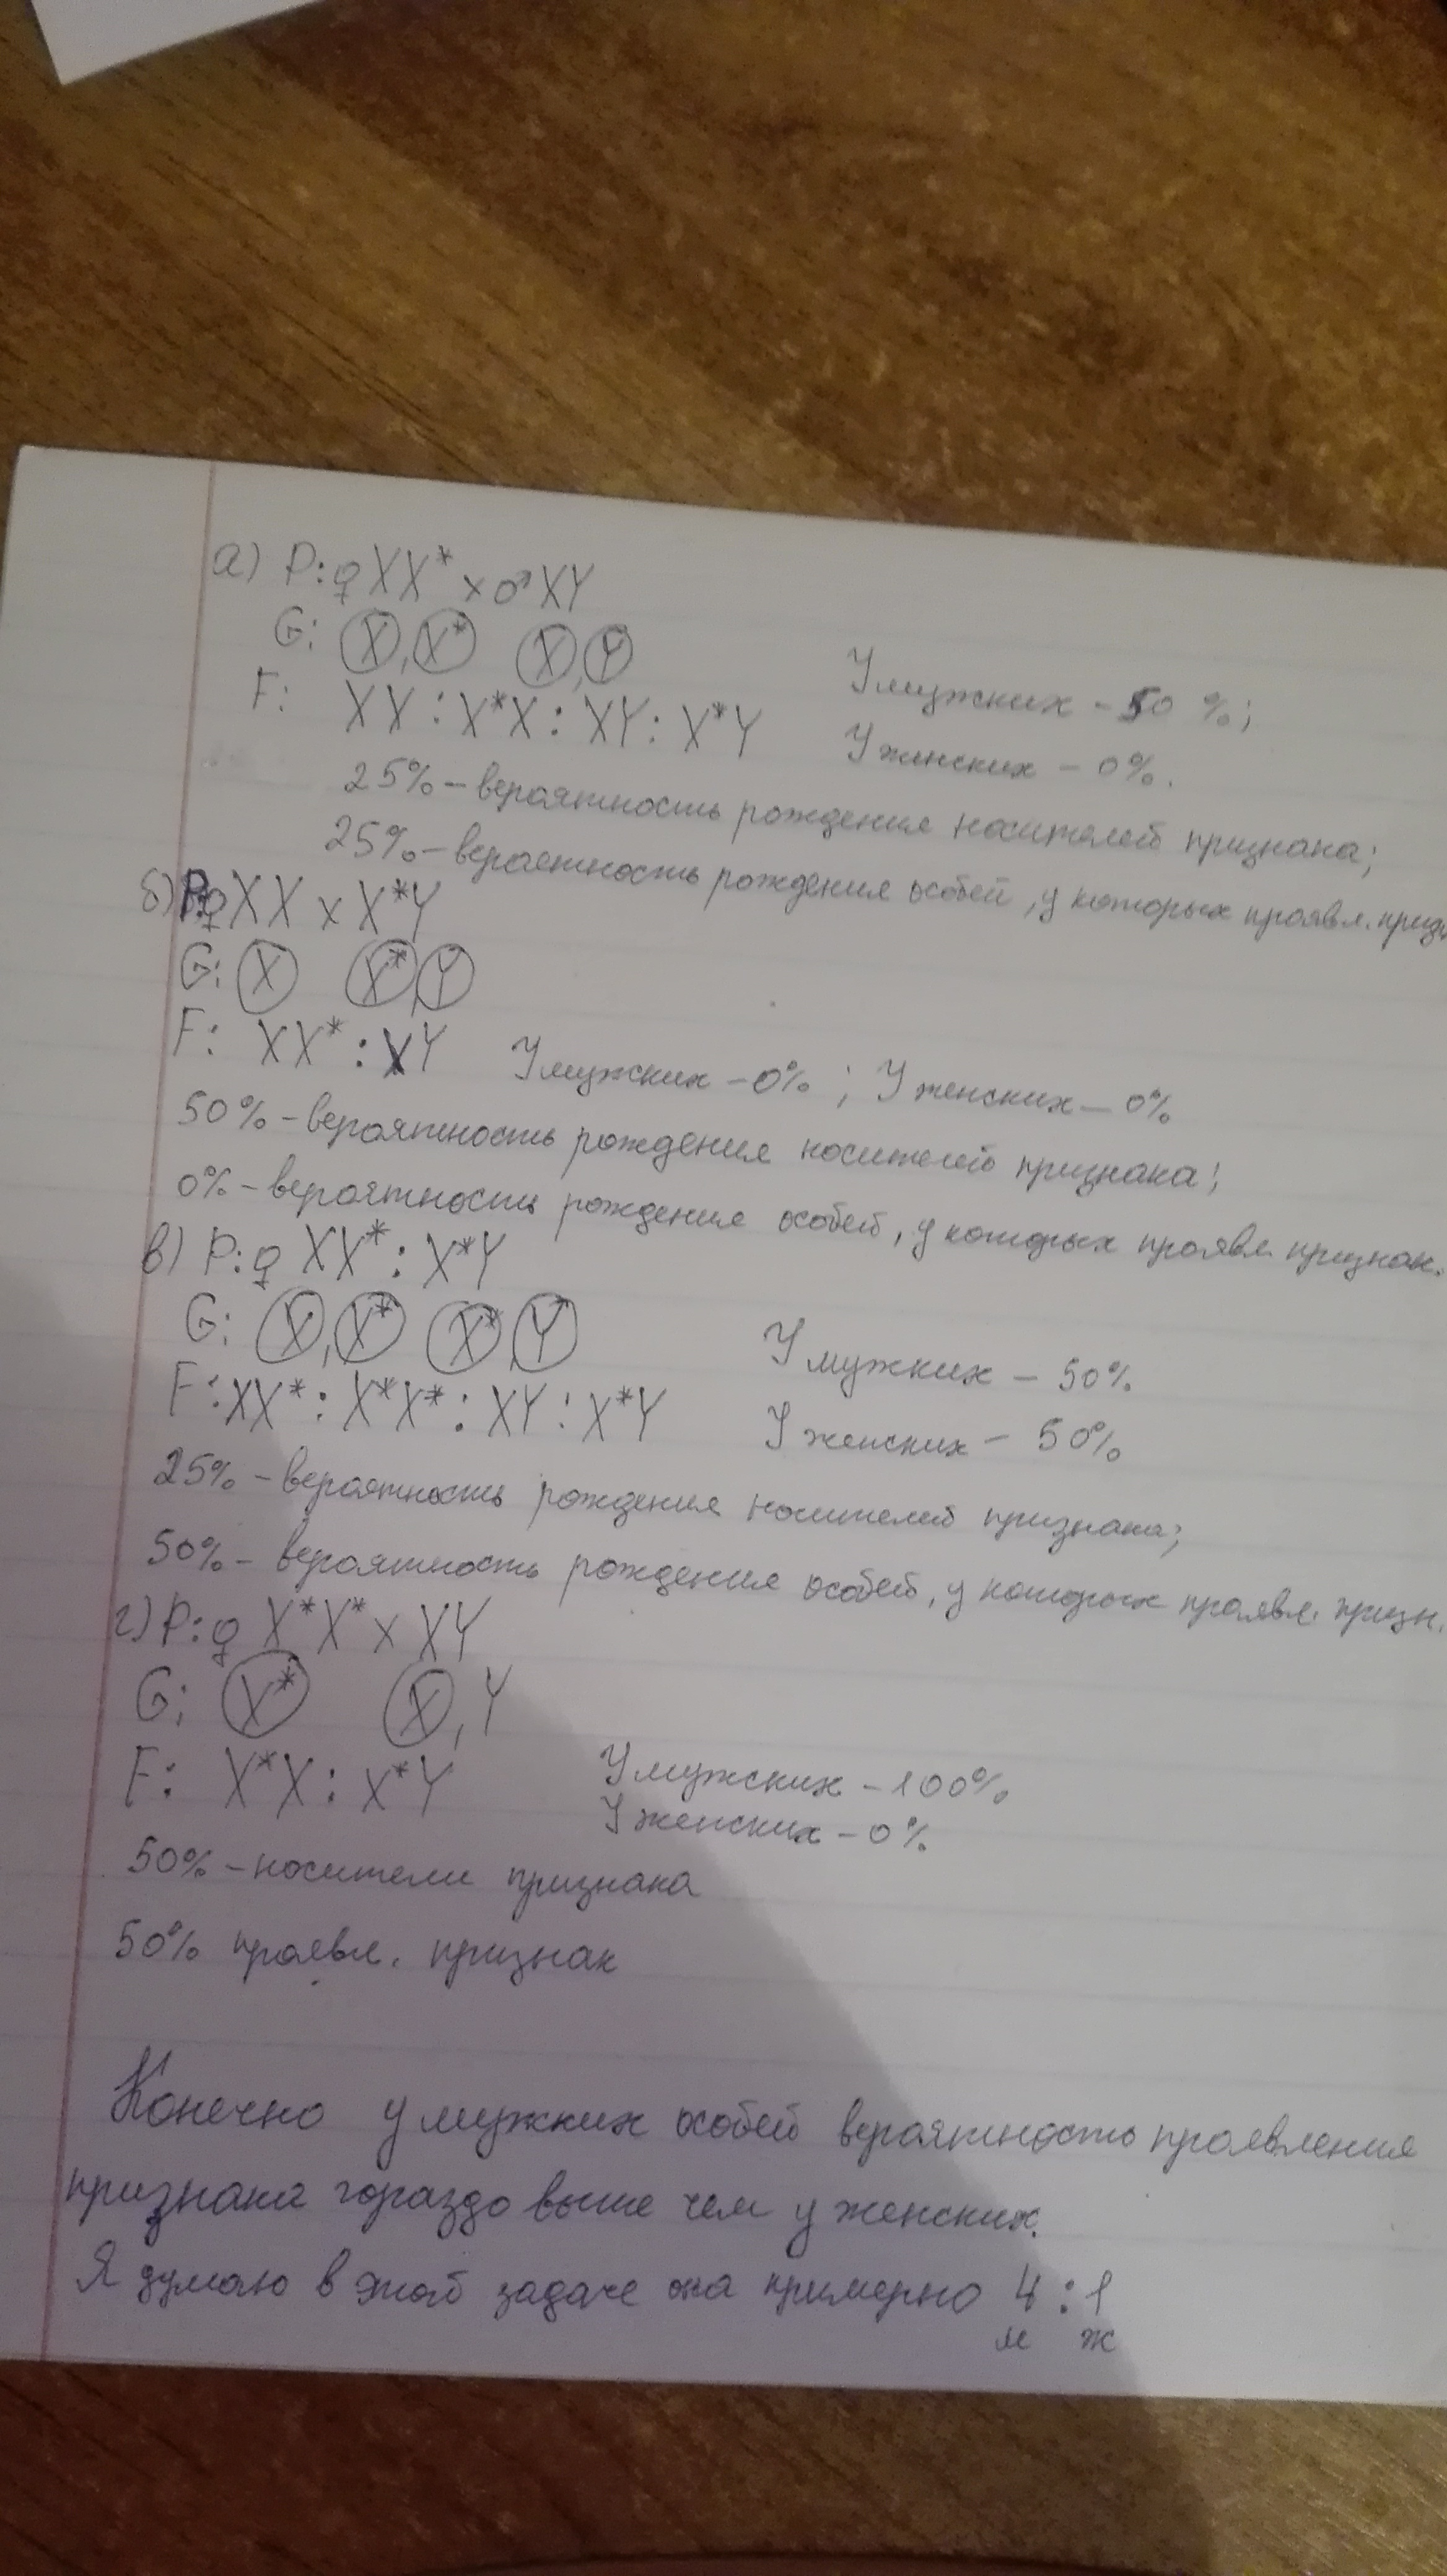 а) P: ♀ XX* × ♂ XY
G: X, X* X, Y
F: XX : X*X : XY : X*Y
У мужских - 50 %;
У женских - 0%.
25% - вероятность рождения носителей признака;
25% - вероятность рождения особей, у которых проявл.
б) P: ♀ XX × X*Y
G: X X*, Y
F: XX* : XY У мужских - 0% ; У женских - 0%
50% - вероятность рождения носителей признака;
0% - вероятность рождения особей, у которых проявл. признак.
в) P: ♀ XX* : X*Y
G: X, X* X*, Y
F: XX* : X*X* : XY : X*Y
У мужских - 50%
У женских - 50%
25% - вероятность рождения носителей признака;
50% - вероятность рождения особей, у которых проявл. призн.
г) P: ♀ X*X* × XY
G: X* X, Y
F: X*X : X*Y
У мужских - 100%
У женских - 0%
50% - носители признака
50% проявл. признак
Конечно у мужских особей вероятность проявления
признака гораздо выше чем у женских.
Я думаю в этой задаче она примерно 4 : 1
м ж